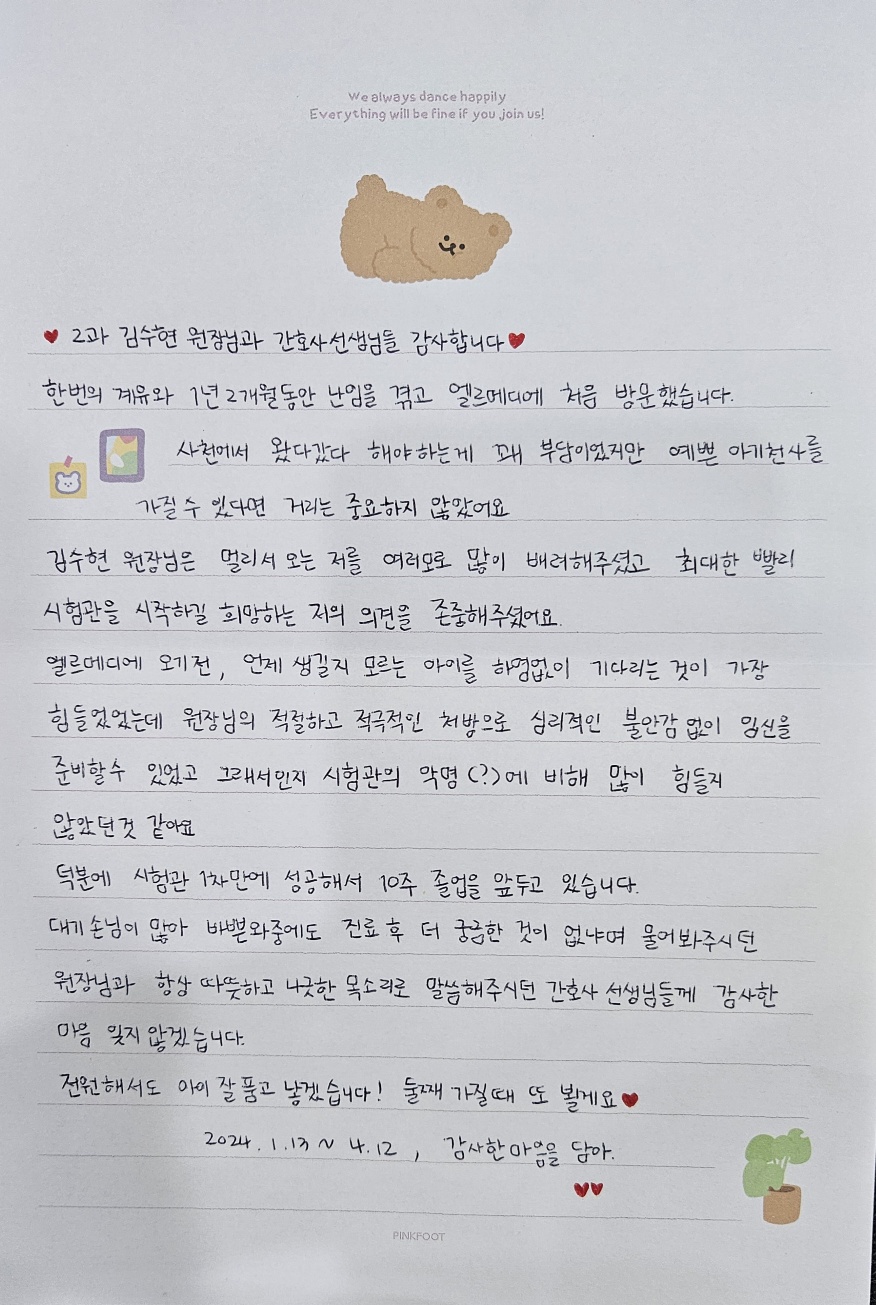 We always dance happily
Everything will be fine if you join us!
♥ 2과 김수현 원장님과 간호사선생님들 감사합니다♥
한번의 계유와 1년 2개월동안 난임을 겪고 엘르메디에 처음 방문했습니다.
사천에서 왔다갔다 해야하는게 꽤 부담이었지만 예쁜 아기천사를
가질 수 있다면 거리는 중요하지 않았어요
김수현 원장님은 멀리서 오는 저를 여러모로 많이 배려해주셨고 최대한 빨리
시험관을 시작하길 희망하는 저의 의견을 존중해주셨어요.
엘르메디에 오기전, 언제 생길지 모르는 아이를 하염없이 기다리는 것이 가장
힘들었었는데 원장님의 적절하고 적극적인 처방으로 심리적인 불안감 없이 임신을
준비할수 있었고 그래서인지 시험관의 악명(?)에 비해 많이 힘들지
않았던것 같아요
덕분에 시험관 1차만에 성공해서 10주 졸업을 앞두고 있습니다.
대기 손님이 많아 바쁜와중에도 진료 후 더 궁금한 것이 없냐며 물어봐주시던
원장님과 항상 따뜻하고 나긋한 목소리로 말씀해주시던 간호사 선생님들께 감사한
마음 잊지 않겠습니다.
전원해서도 아이 잘 품고 낳겠습니다! 둘째 가질때 또 뵐게요♥
2024. 1.13 ~ 4.12 , 감사한마음을 담아.
♥♥
PINKFOOT